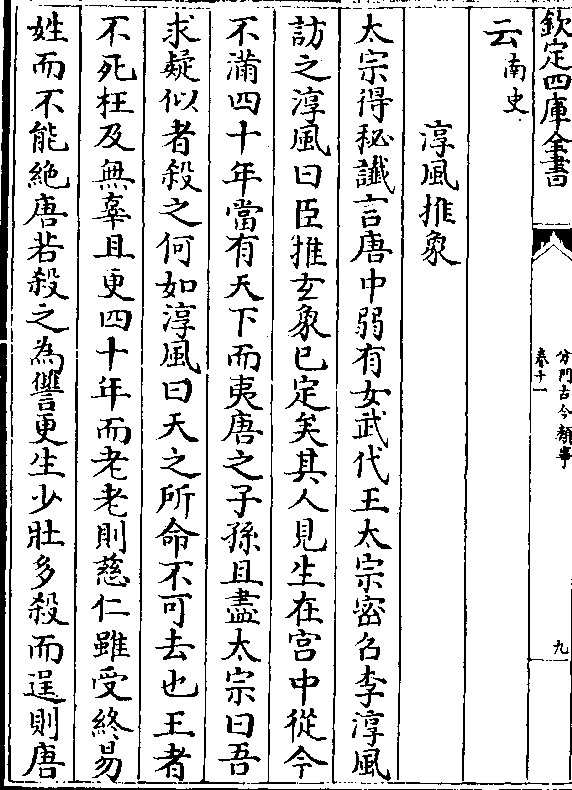 欽定四庫全書
分門古今類事
卷十一
九
云南史
淳風推象
太宗得秘讖言唐中弱有女武代王太宗密召李淳風
訪之淳風曰臣推玄象已定矣其人見生在宫中從今
不滿四十年當有天下而夷唐之子孫且盡太宗曰吾
求疑似者殺之何如淳風曰天之所命不可去也王者
不死枉及無辜且更四十年而老老則慈仁雖受終易
姓而不能絶唐若殺之為讐更生少壯多殺而逞則唐